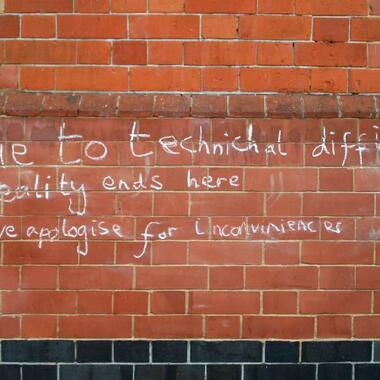 ue to technichal diffi
eality ends here
ve apologise for inconviniences